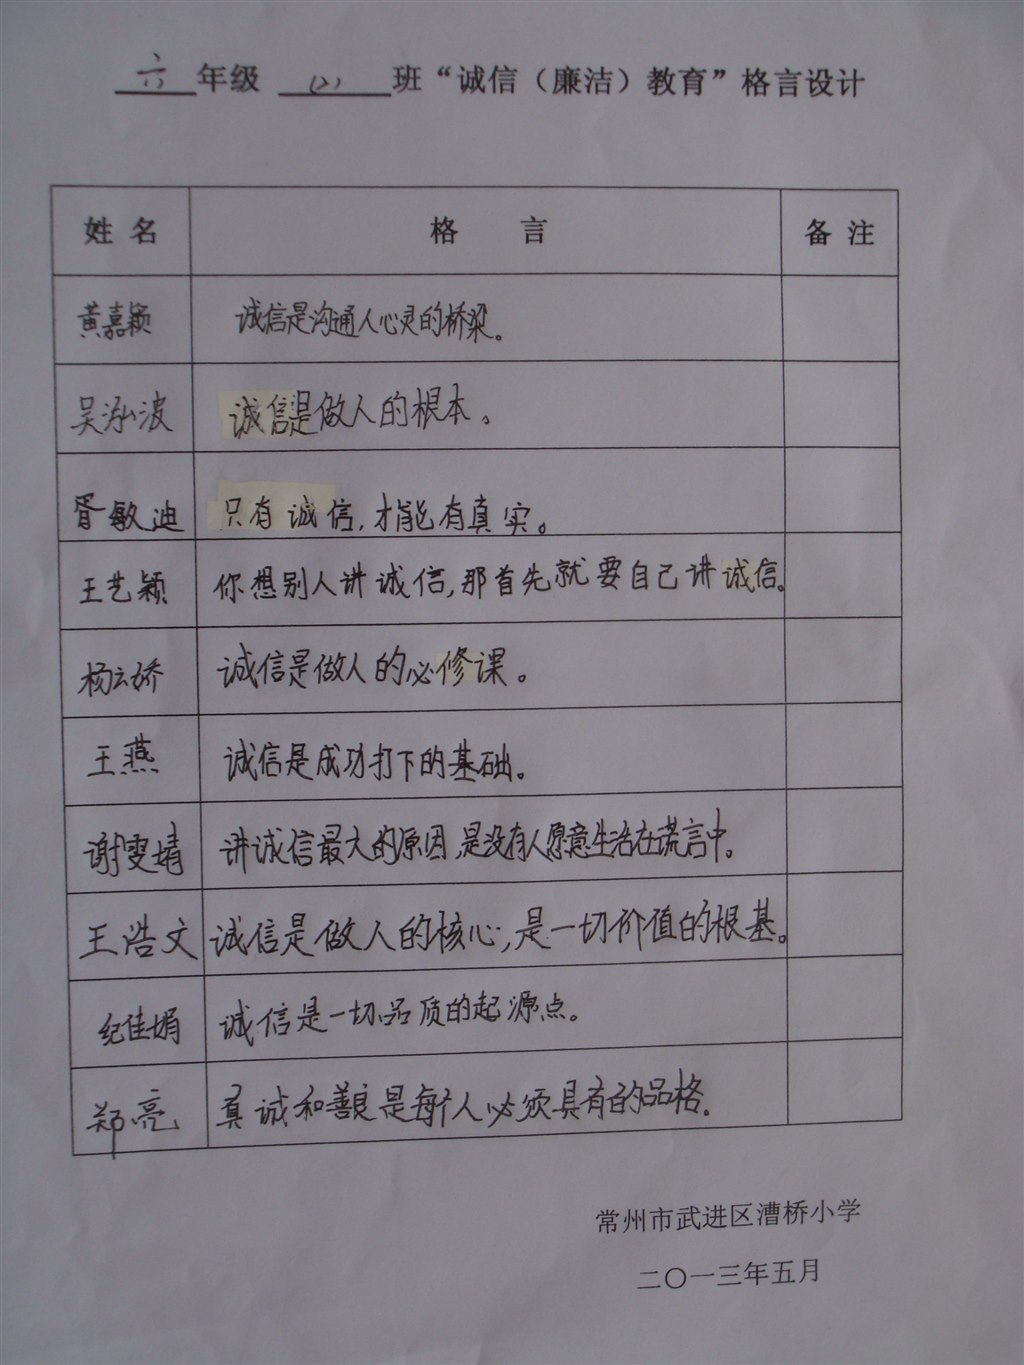 六年级 (2) 班“诚信（廉洁）教育”格言设计
姓名 格言 备注
黄嘉颖 诚信是沟通人心灵的桥梁。
吴泓波 诚信是做人的根本。
胥敏迪 只有诚信,才能有真实。
王艺颖 你想别人讲诚信,那首先就要自己讲诚信。
杨云娇 诚信是做人的必修课。
王燕 诚信是成功打下的基础。
谢雯婧 讲诚信最大的原因,是没有人愿意生活在谎言中。
王浩文 诚信是做人的核心,是一切价值的根基。
纪佳娟 诚信是一切品质的起源点。
郑亮 真诚和善良是每个人必须具有的品格。
常州市武进区漕桥小学
二〇一三年五月